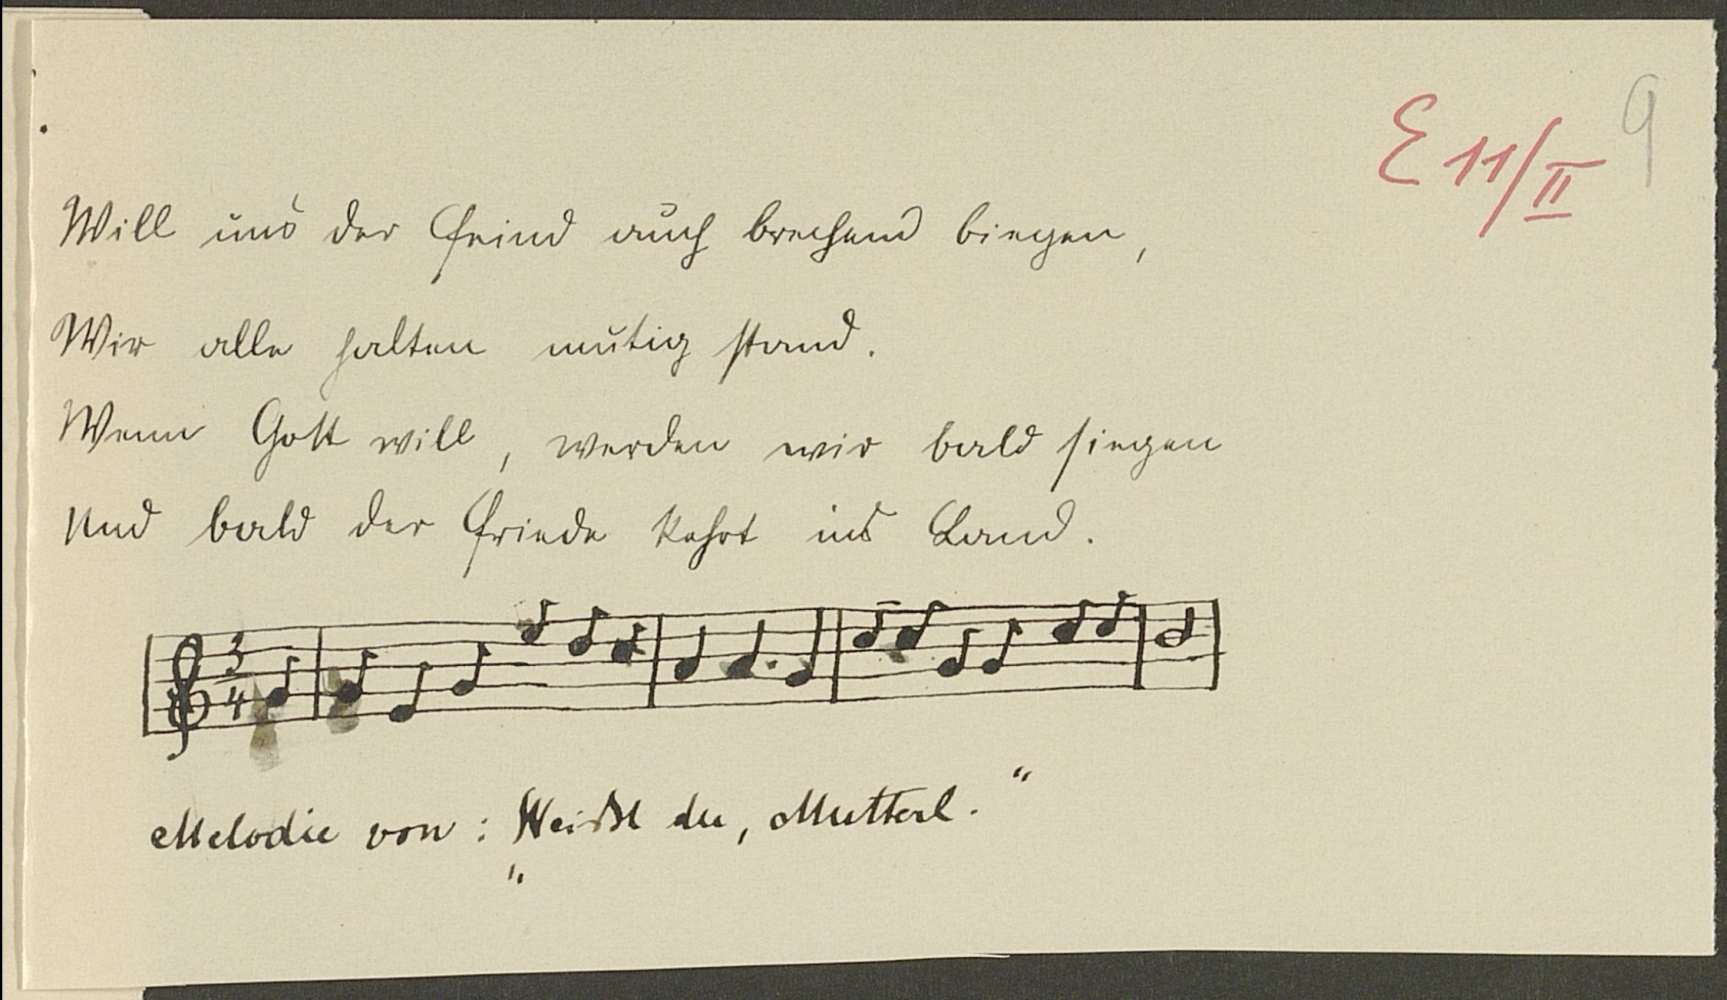 E 11/II 9
Will uns der Feind auch brechend biegen,
Wir alle halten mutig stand.
Wenn Gott will, werden wir bald siegen
Und bald der Friede kehrt ins Land.
3
4
Melodie von: „Weißt du, Mutterl.“